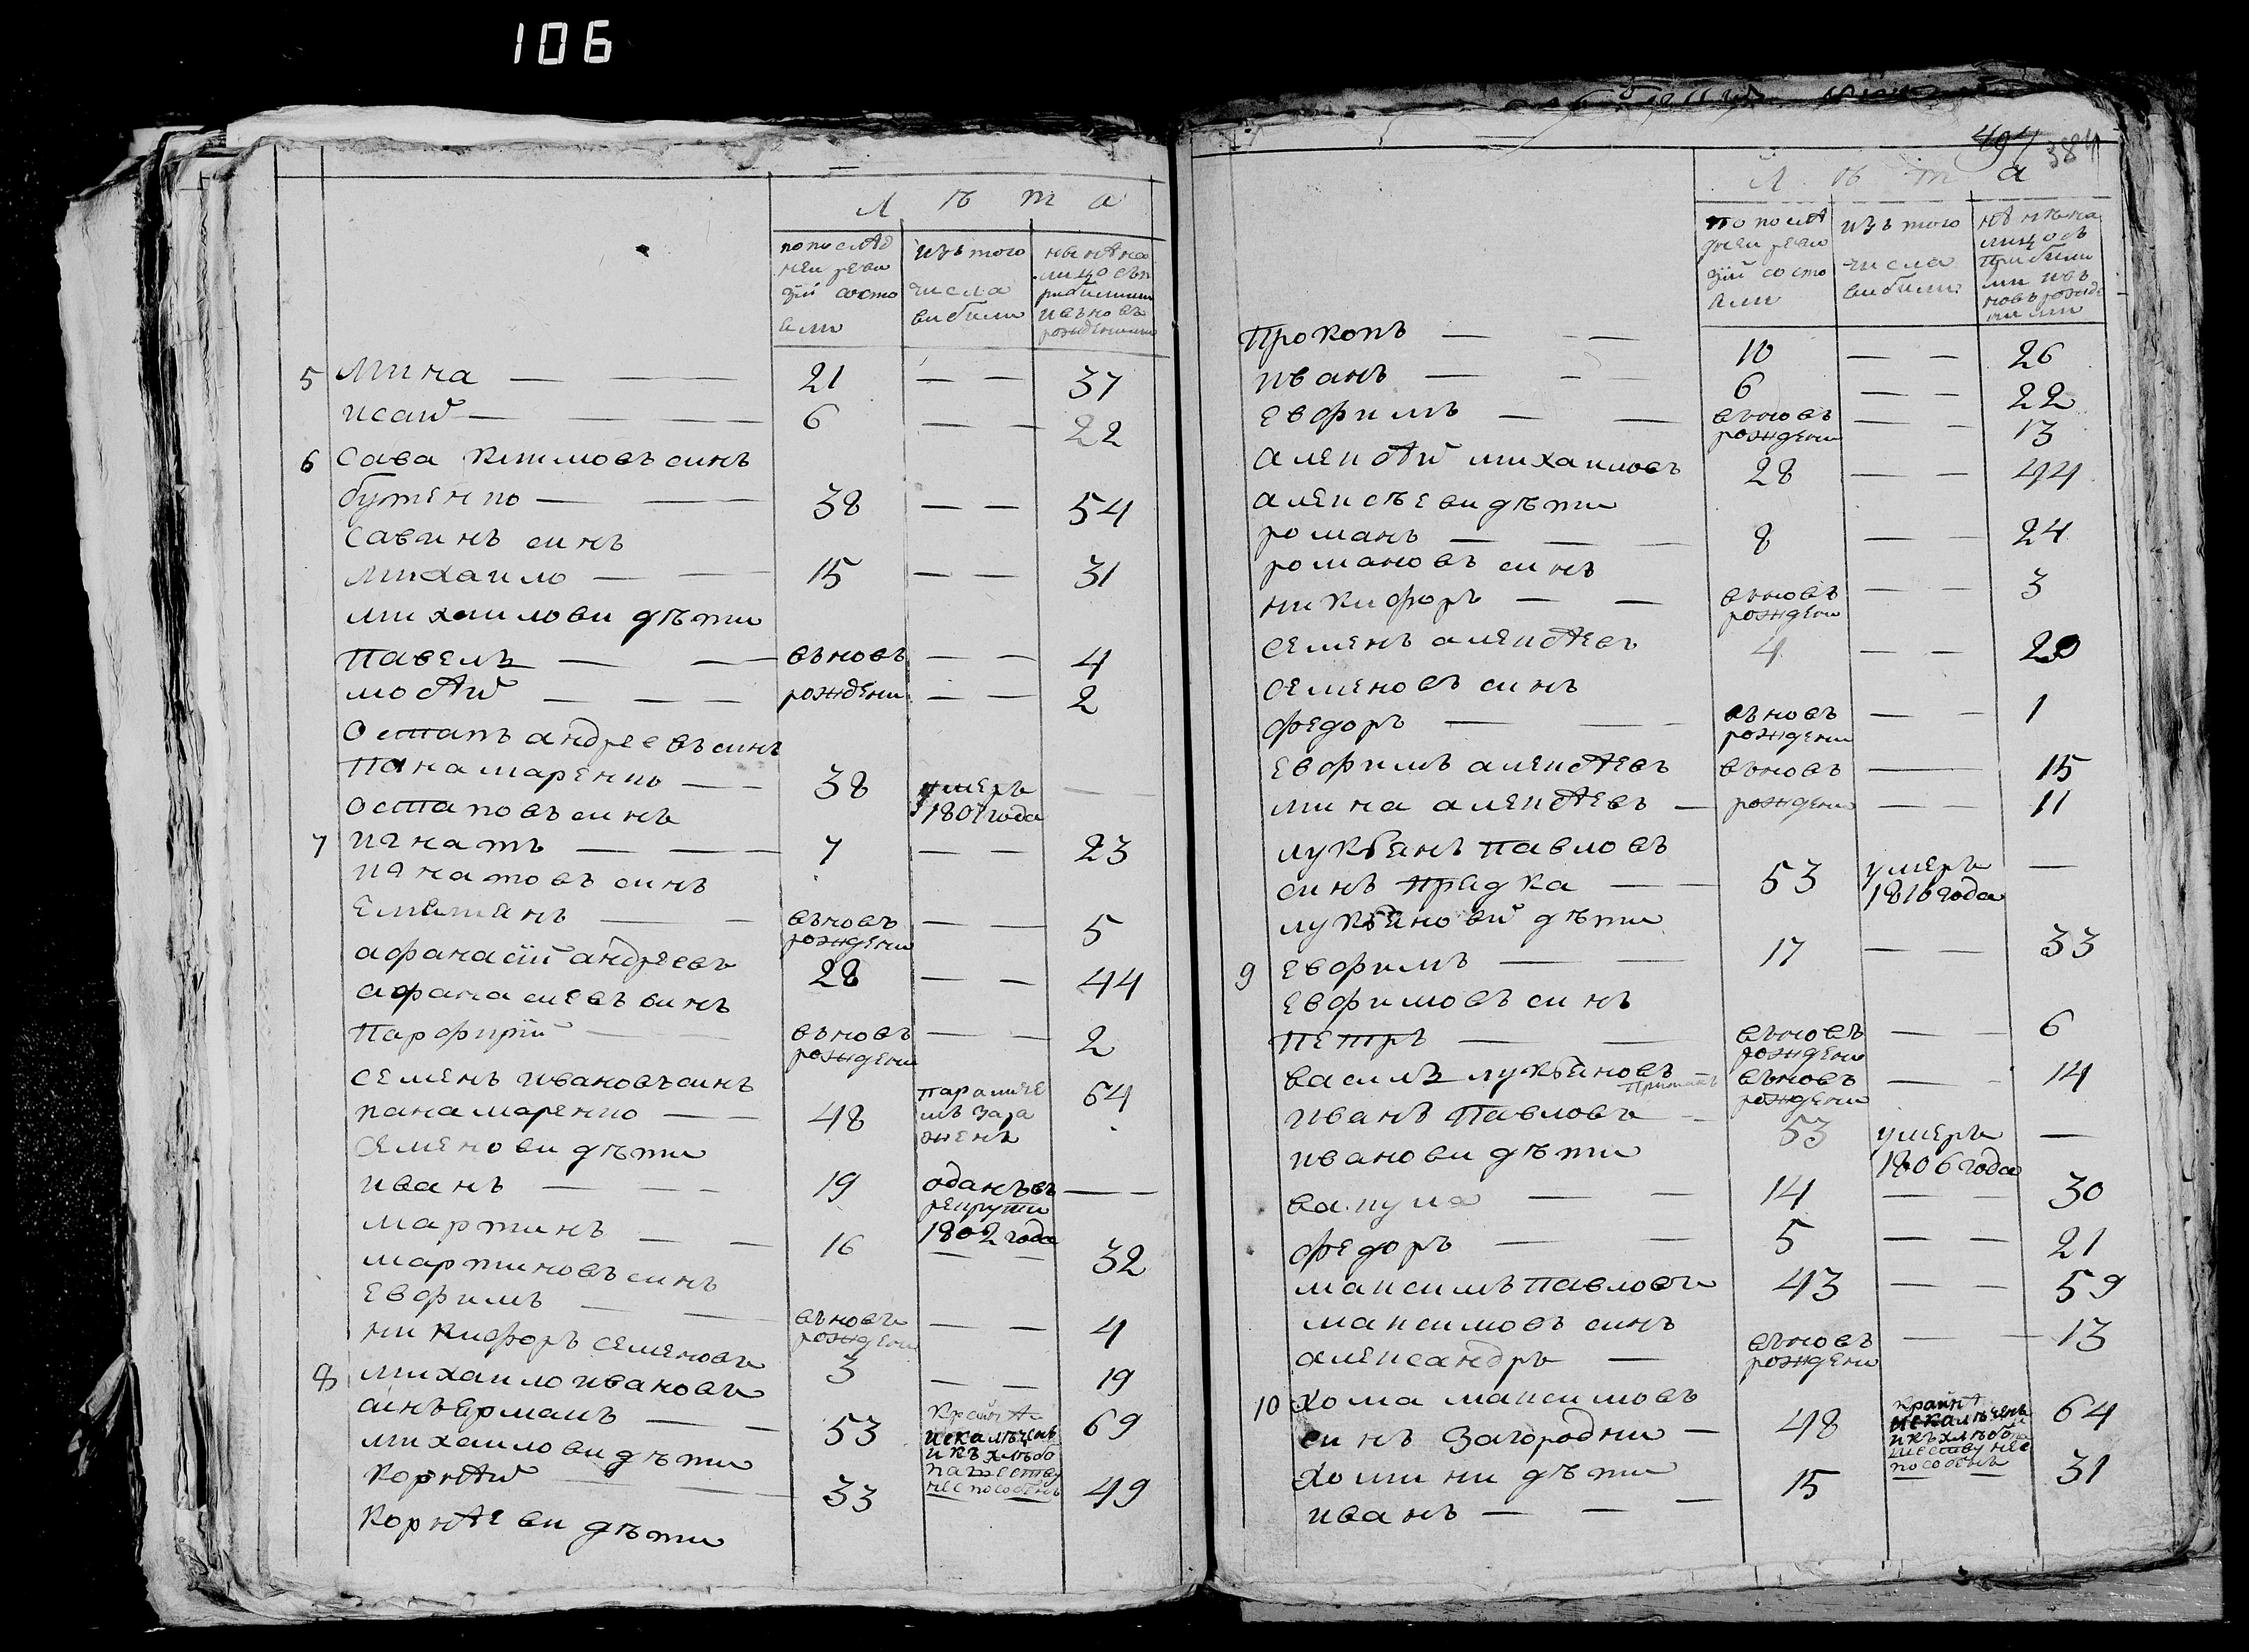 106
Л ѣ т а
попослѣд
неи реви
зіи состо
яли
изъ того
числа
выбыли
нынѣна
лицо съп
рибылими
ивъновъ
рожденими
5 Мина — — — 21 — — 37
исай — — — 6 — — 22
6 Сава климовъ синъ
бутенко — — 38 — — 54
Савинъ синъ
михаило — — 15 — — 31
михаилови дѣти
Павелъ — — въновь — — 4
мосѣй — — — рождени — — 2
Остапъ андреевъ синъ
Панамаренко — — 38 умеръ 1807 года — —
остаповъ синъ
7 игнатъ — — — 7 — — 23
игнатовъ синъ
Емелианъ — — въновь рождени — — 5
афанасій андреевъ 28 — — 44
афанасиевъ синъ
Парфирій — — въновь рождени — — 2
семенъ ивановъ синъ
панамаренко — — 48 параличе мъ зара женъ 64
Семенови дѣти
иванъ — — — 19 оданъ въ рекрути 1802 года — —
мартинъ — — 16 — — 32
мартиновъ синъ
Евфимъ — — въновь рождени — — 4
никифоръ семеновъ 3 — — 19
8 михаило ивановъ
синъ Ермакъ — — 53 Крайнѣ искалѣченъ и къ хлѣбо пашеству неспособенъ 69
михаилови дѣти
корнѣй — — 33 49
Корнѣеви дѣти
497 384
Л ѣ т а
по послѣ
днеи реви
зіи состо
яли
изъ того
числа
выбыли
нынѣна
лицо съ
прибыли
ми ивъ
новь рожде
ними
Прокопъ — — — 10 — — 26
иванъ — — — 6 — — 22
евфимъ — — въновь рождени — — 13
алексѣй михаиловъ 28 — — 44
алексѣеви дѣти
романъ — — — 8 — — 24
романовъ синъ
никифоръ — — въновь рождени — — 3
семенъ алексѣевъ 4 — — 20
семеновъ синъ
федоръ — — въновь рождени — — 1
евфимъ алексѣевъ въновь — 15
мина алексѣевъ — рождени — — 11
лукьянъ павловъ
синъ прядка — — 53 умеръ 1816 года —
лукьянови дѣти
9 евфимъ — — 17 — — 33
евфимовъ синъ
петръ — — въновь рождени — — 6
василь лукьяновъ въновь рождени — — 14
иванъ Павловъ — 53 умеръ 1806 года —
иванови дѣти
вакула — — 14 — — 30
федоръ — — 5 — — 21
максимъ павловъ 43 — — 59
максимовъ синъ
александръ — въновь рождени — — 13
10 хома максимовъ
синъ Загородни — 48 крайнѣ искалѣченъ и къ хлѣбопа шеству нес пособенъ 64
хомини дѣти
иванъ — — — 15 — — 31